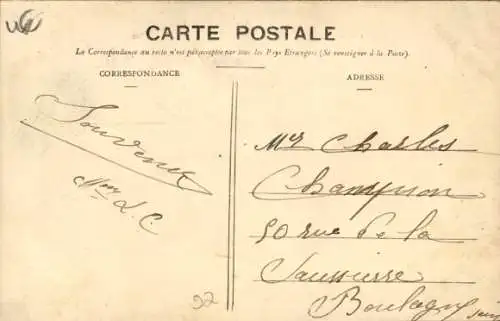 CARTE POSTALE
La Correspondance au recto n'est pas acceptée par tous les Pays Etrangers (Se renseigner à la Poste).
CORRESPONDANCE
ADRESSE
Souvenir
L. C.
Charles
Champion
50 rue de la
Saussière
Boulogne
92